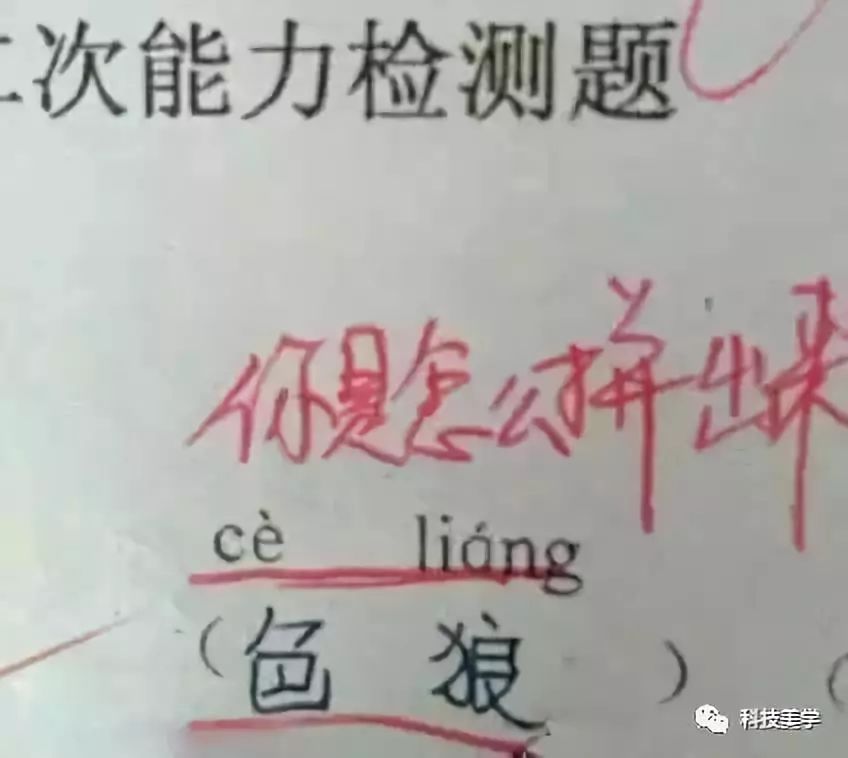 次能力检测题
你是怎么拼出来
cè liáng
（色 狼）（
科技美学